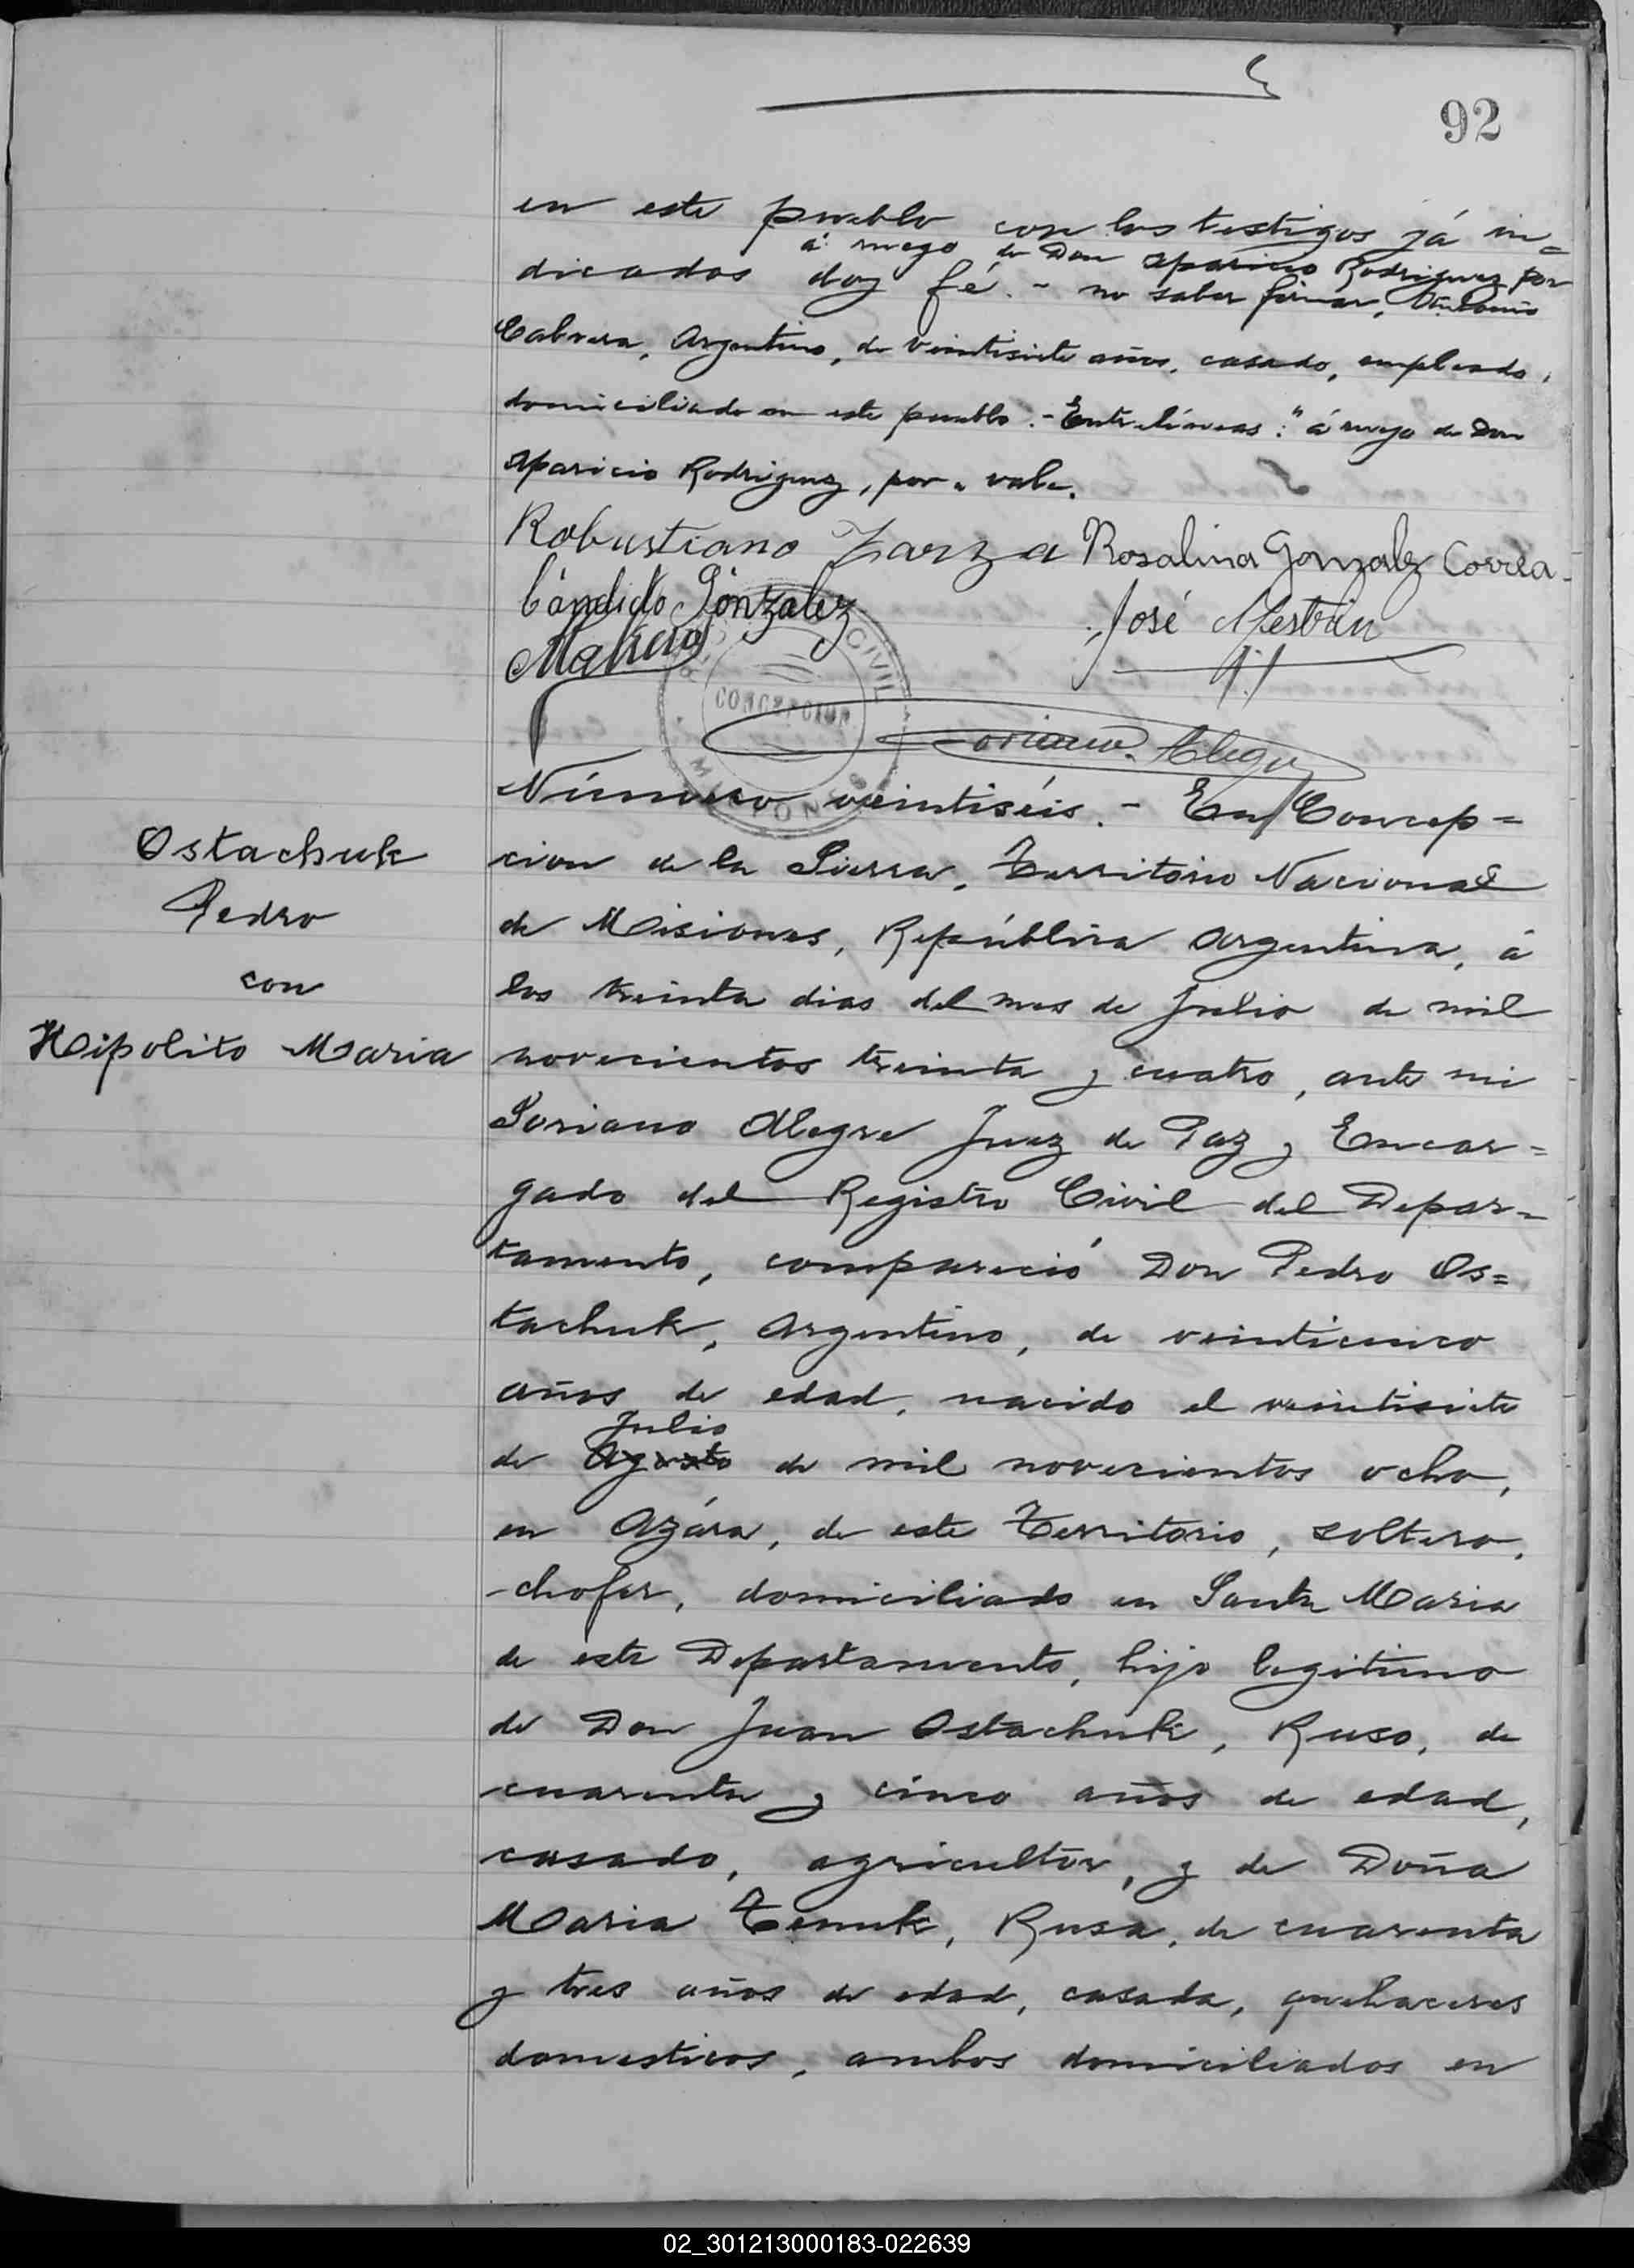 92
en este pueblo con los testigos já in=
á ruego de Don Aparicio Rodriguez por
dicados doy fé.- no saber firmar, Antonio
Cabrera, Argentino, de veintisiete años, casado, empleado,
domiciliado en este pueblo.- Entre lineas: "á ruego de Don
Aparicio Rodriguez, por" vale.
Robustiano Zarza Rosalina Gonzalez Correa
Cándido Gónzalez José
CIVIL
CONCEPCION
MISIONES
Soriano Alegre
Número veintiséis.- En Concep=
cion de la Sierra, Territorio Nacional
de Misiones, República Argentina, á
los treinta dias del mes de Julio de mil
novecientos treinta y cuatro, ante mi
Soriano Alegre Juez de Paz y Encar=
gado del Registro Civil del Depar=
tamento, compareció Don Pedro Os=
tachuk, Argentino, de veinticinco
años de edad, nacido el veintisiete
Julio
de Agosto de mil novecientos ocho,
en Azára, de este Territorio, soltero,
chofer, domiciliado en Santa Maria
de este Departamento, hijo legitimo
de Don Juan Ostachuk, Ruso, de
cuarenta y cinco años de edad,
casado, agricultor, y de Doña
Maria Temuk, Rusa, de cuarenta
y tres años de edad, casada, quehaceres
domesticos, ambos domiciliados en
Ostachuk
Pedro
con
Hipolito Maria
02_301213000183-022639